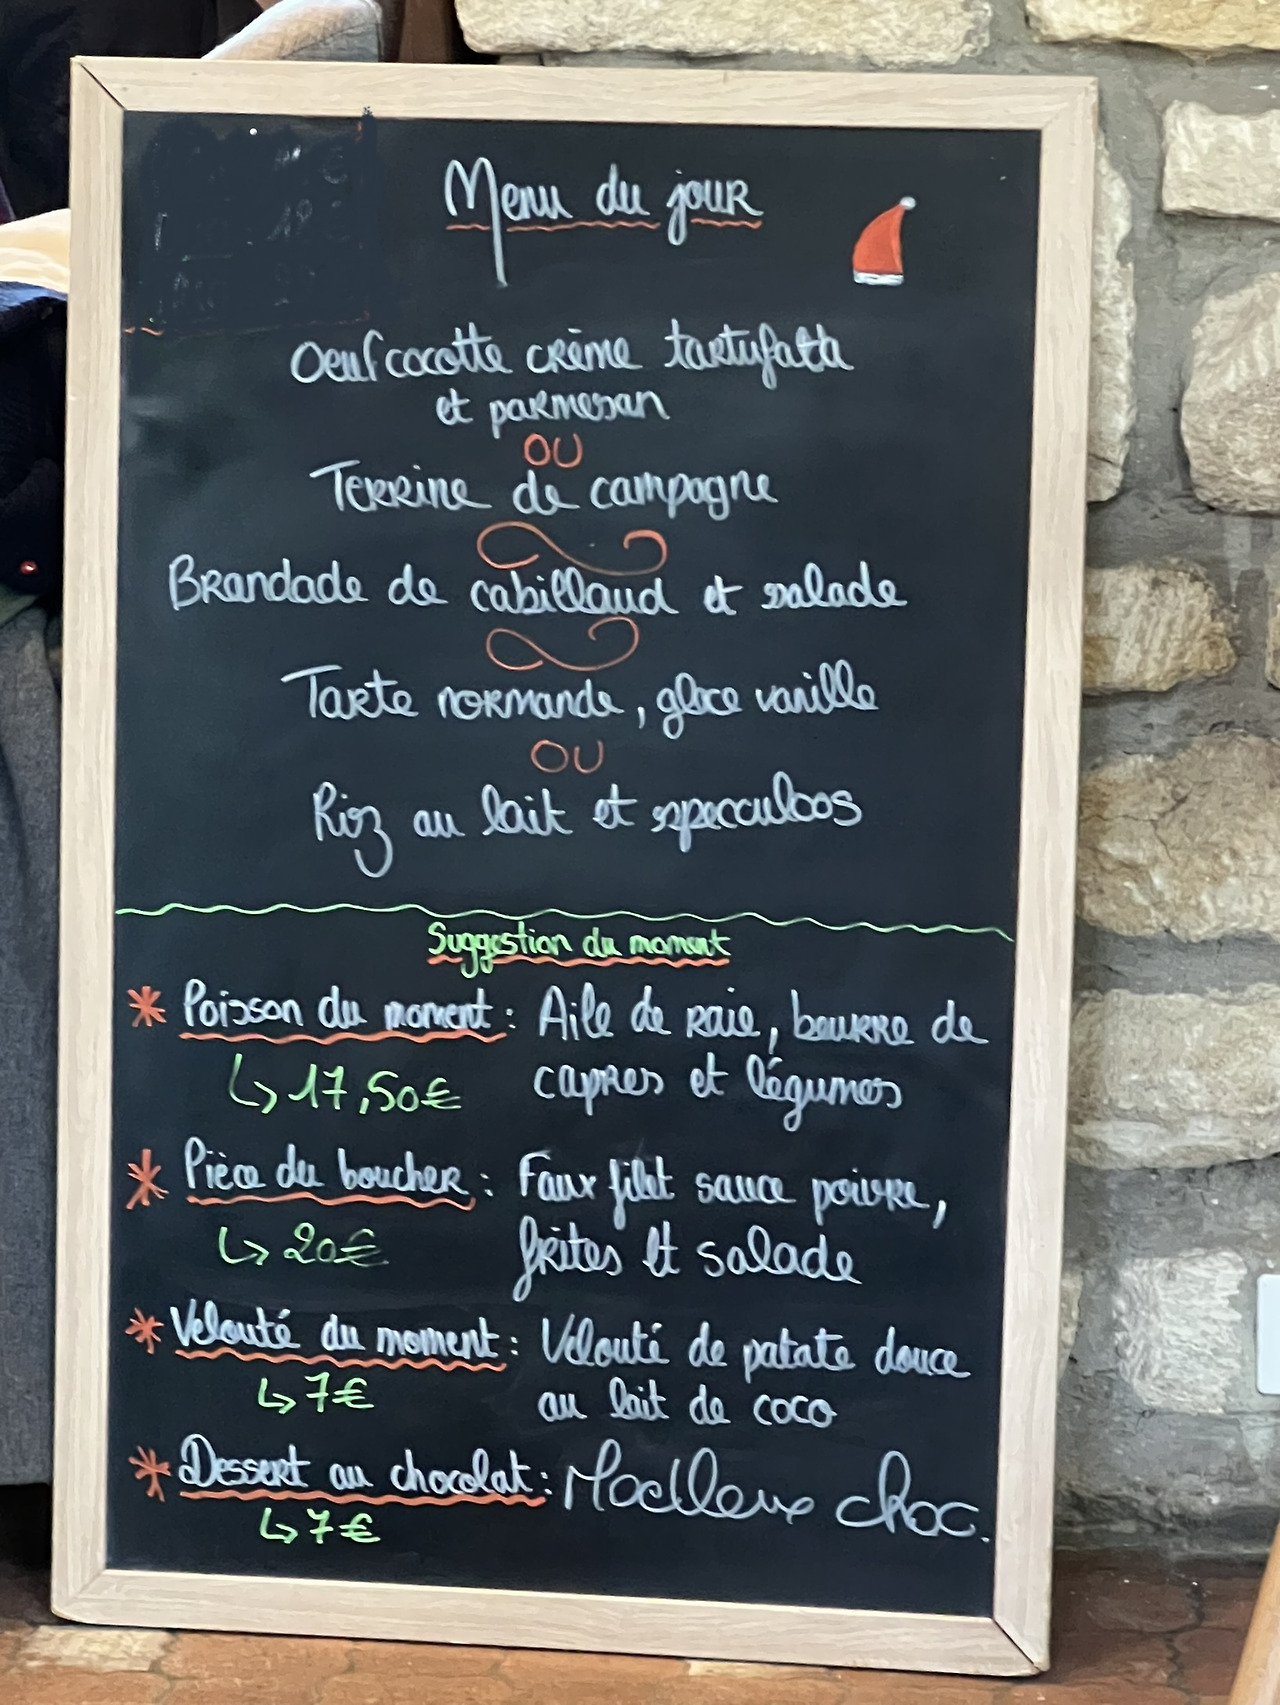 Menu du jour
Oeuf cocotte crème tartufata
et parmesan
OU
Terrine de campagne
Brandade de cabillaud et salade
Tarte normande, glace vanille
OU
Riz au lait et speculoos
Suggestion du moment
* Poisson du moment : Aile de raie, beurre de
↳ 17,50€ capres et légumes
* Pièce du boucher : Faux filet sauce poivre,
↳ 20€ frites et salade
* Velouté du moment : Velouté de patate douce
↳ 7€ au lait de coco
* Dessert au chocolat : Moelleux choc.
↳ 7€